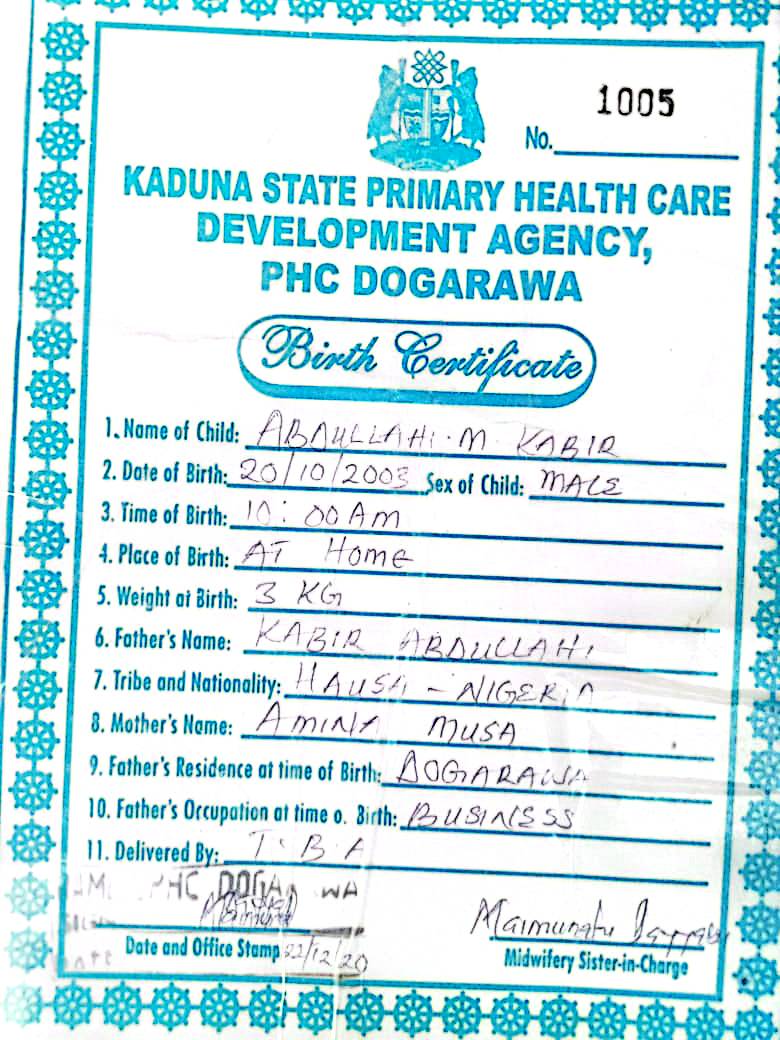 1005
No.
KADUNA STATE PRIMARY HEALTH CARE
DEVELOPMENT AGENCY,
PHC DOGARAWA
Birth Certificate
1. Name of Child: ABDULLAHI . M KABIR
2. Date of Birth: 20/10/2003 Sex of Child: MALE
3. Time of Birth: 10:00AM
4. Place of Birth: AT HOME
5. Weight at Birth: 3 KG
6. Father's Name: KABIR ABDULLAHI
7. Tribe and Nationality: HAUSA - NIGERIA
8. Mother's Name: AMINA MUSA
9. Father's Residence at time of Birth: DOGARAWA
10. Father's Occupation at time o. Birth: BUSINESS
11. Delivered By: T.B.A
PHC DOGA WA
Maimunatu
Date and Office Stamp 22/12/20
Midwifery Sister-in-Charge